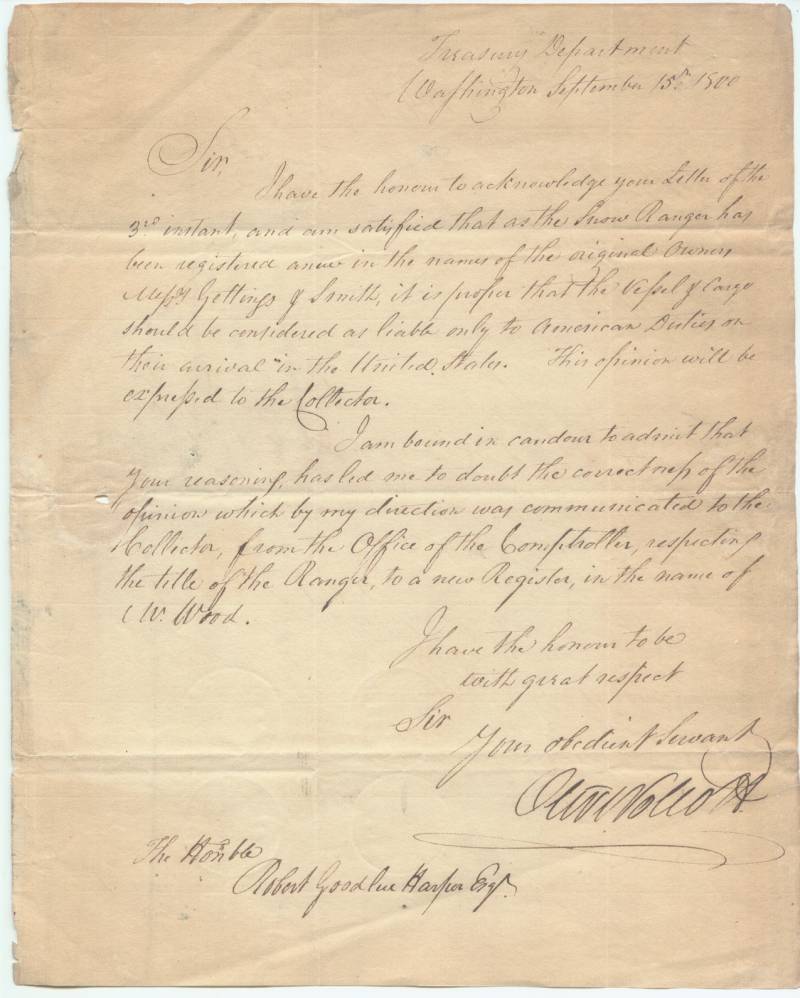 Treasury Department
Washington September 15th 1800
Sir,
I have the honour to acknowledge your Letter of the
3rd instant, and am satisfied that as the Snow Ranger has
been registered anew in the names of the original Owners
Messrs Gettings & Smith, it is proper that the Vessel & Cargo
should be considered as liable only to American Duties on
their arrival in the United States. This opinion will be
expressed to the Collector.
I am bound in candour to admit that
Your reasoning, has led me to doubt the correctness of the
opinion which by my direction was communicated to the
Collector, from the Office of the Comptroller, respecting
the title of the Ranger, to a new Register, in the name of
Mr. Wood.
I have the honour to be
with great respect
Sir
Your obedient Servant
Oliv Wolcott
The Honble
Robert Goodlue Harper Esqr.